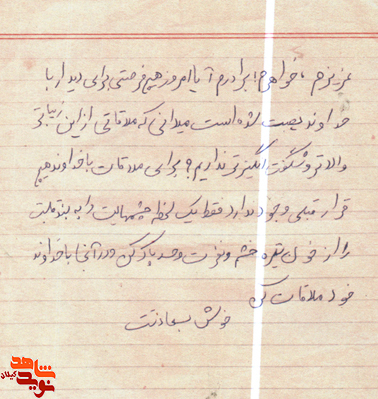 عزیزم، خواهرم! برادرم آیا امروز هیچ فرصتی برای دیدار با
خداوند نصیبت شده است میدانی که ملاقاتی از این زیباتر
والاتر و شگفت انگیزتر نداریم؟ برای ملاقات با خداوند هیچ
قرار قبلی وجود ندارد فقط یک لحظه چشمهایت را ببند قلبت
را از خشم و نفرت و حسد پاک کن و در آنجا با خداوند
خود ملاقات کن
خوش بسعادتت
شاهد
نوید
گیلان